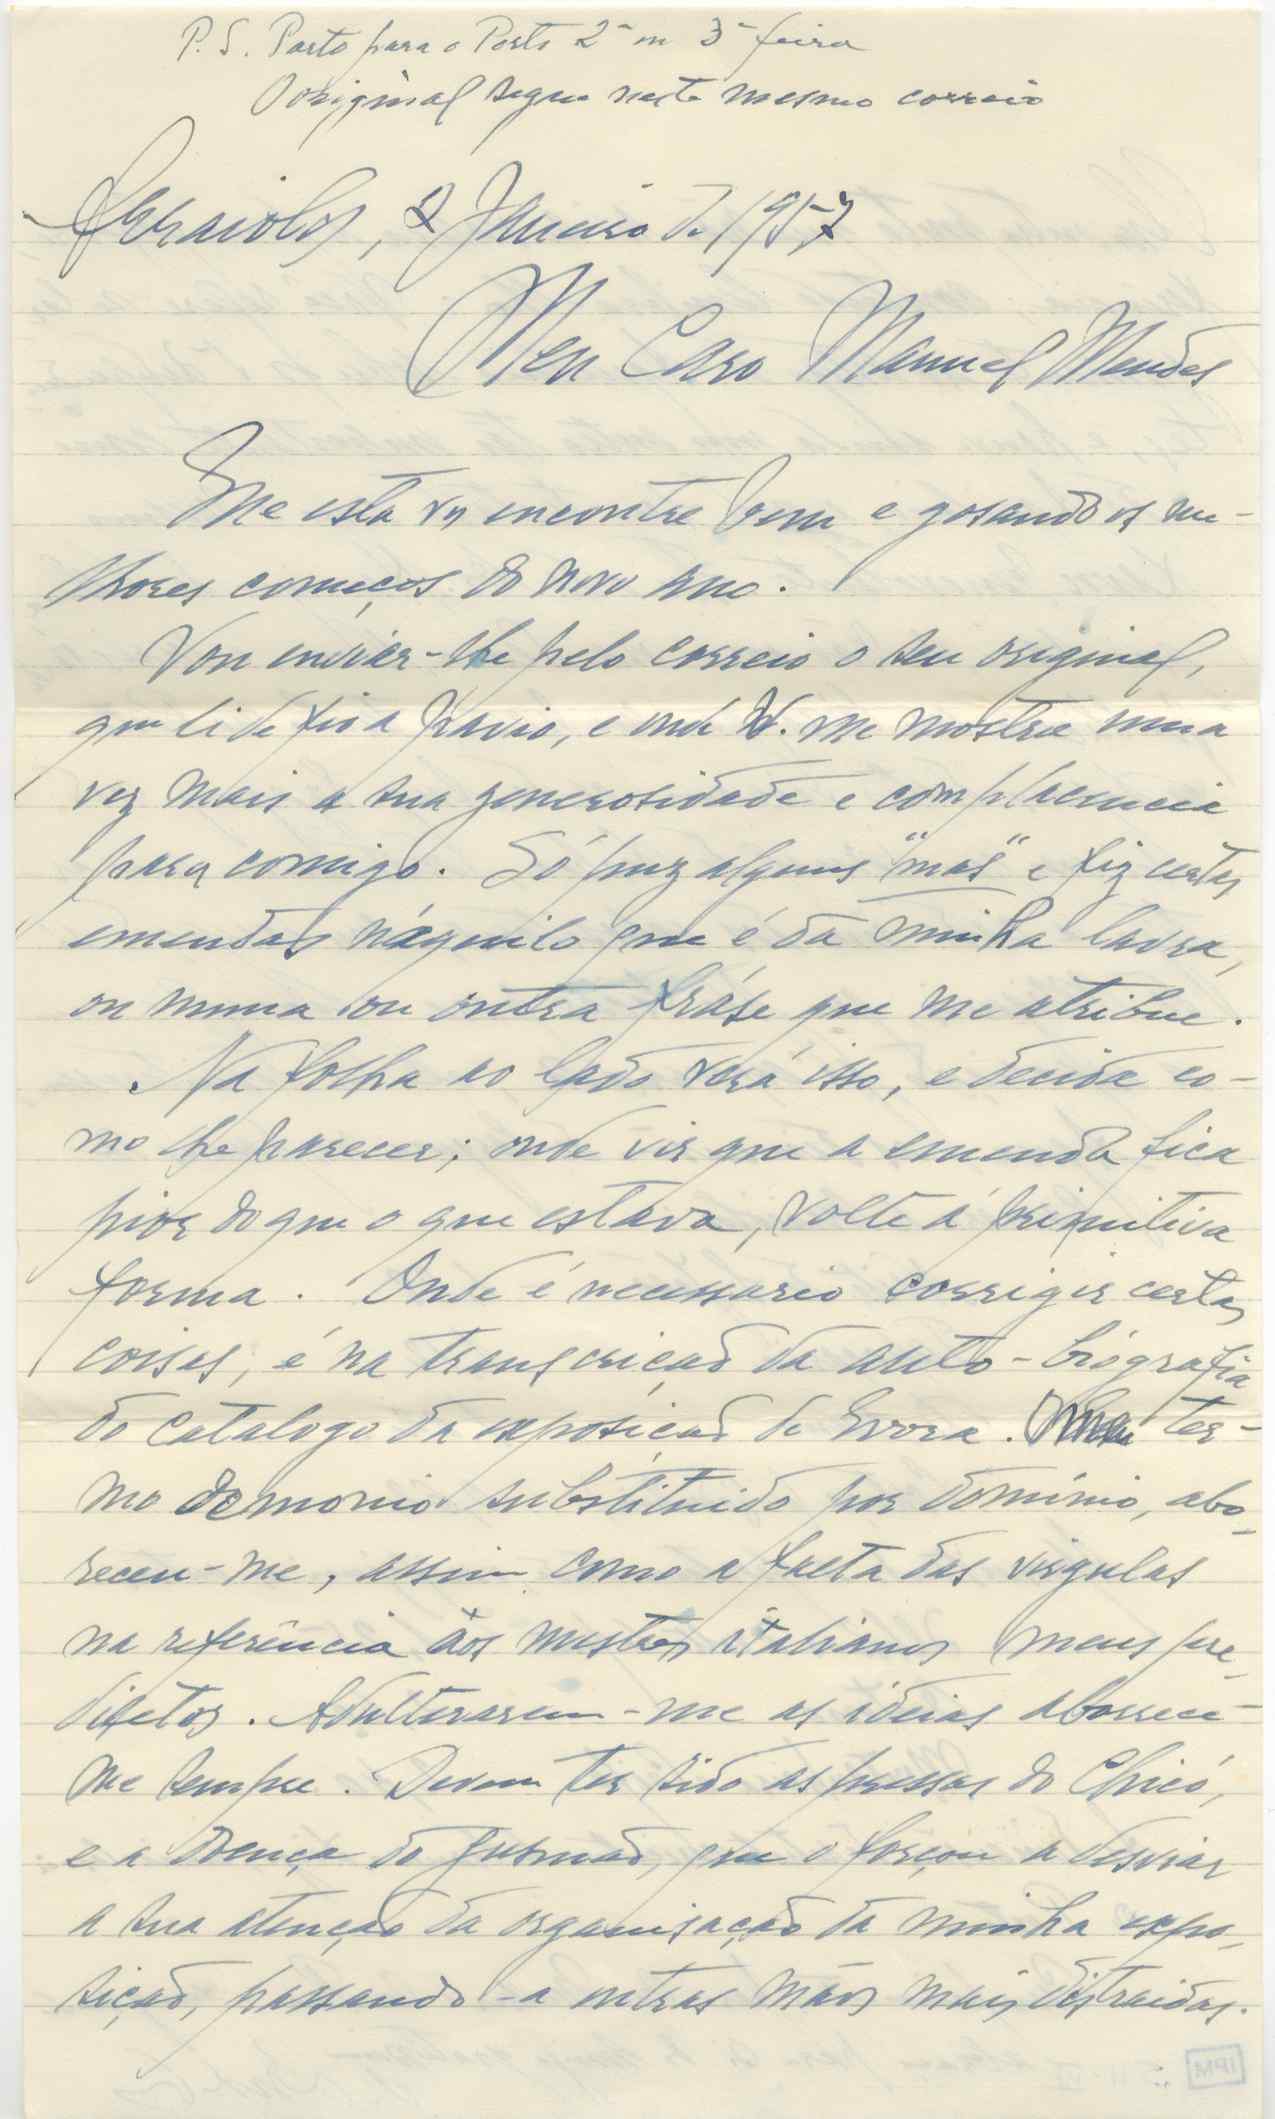 P.S. Parto para o Porto 2ª ou 3ª feira
O original segue neste mesmo correio
Arraiolos, 2 Janeiro de 1957
Meu Caro Manuel Mendes
Que esta vº encontre bem e gosando os me-
lhores começos do novo ano.
Vou enviar-lhe pelo correio o seu original,
que li de fio a pavio, e onde V. me mostra uma
vez mais a sua generosidade e complacencia
para comigo. Só puz alguns "mas" e fiz certas
emendas náquilo que é da minha lavra,
ou numa ou outra fráse que me atribue.
Na folha ao lado verá isso, e decida co-
mo lhe parecer; onde vir que a emenda fica
pior do que o que estava, volte á primitiva
forma. Onde é necessario corrigir certas
coisas, é na transcrição da auto-biógrafia
do catalogo da exposição de Evora. O meu ter-
mo demonio substituido por domínio, abo-
receu-me, assim como a falta das virgulas
na referência aos mestres italianos meus pre-
diletos. Adulterarem-me as ideias aborrece-
me sempre. Devem ter sido as pressas do Chicó,
e a doença do Gusmão, que o forçou a desviar
a sua atenção da organisação da minha expo-
sição, passando-a outras mãos mais distraidas.
IPM